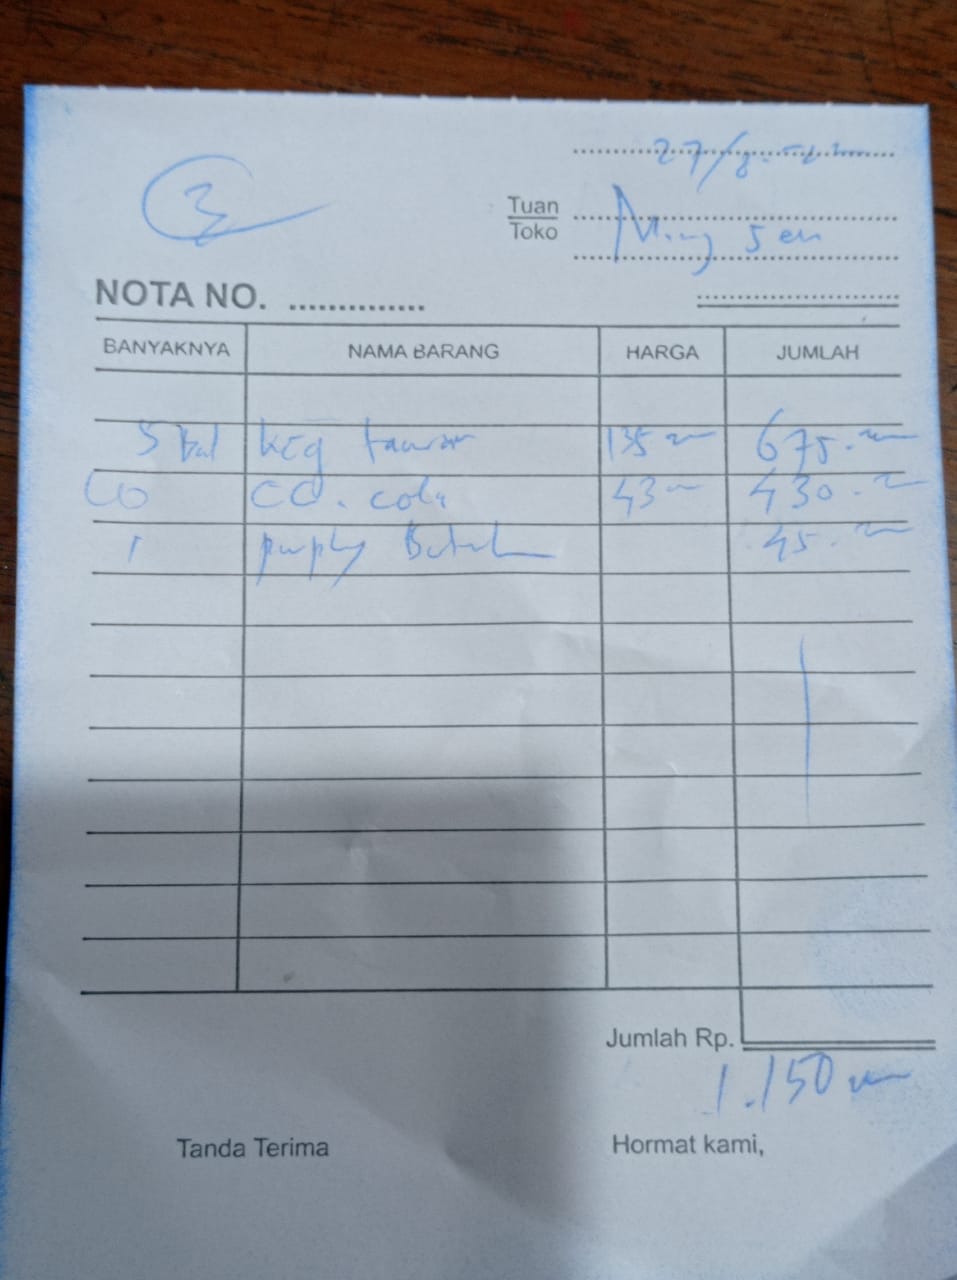 3
27/8
Tuan
Toko
Ming Sen
NOTA NO. ..............
BANYAKNYA NAMA BARANG HARGA JUMLAH
5 bal tawar 135 675.
10 co. cola 43 430.
1 45.
Jumlah Rp.
1.150
Tanda Terima Hormat kami,